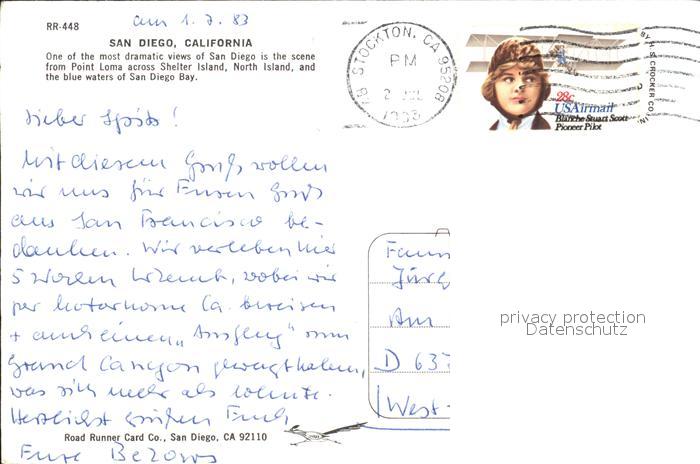 RR-448
am 1.7.83
SAN DIEGO, CALIFORNIA
One of the most dramatic views of San Diego is the scene
from Point Loma across Shelter Island, North Island, and
the blue waters of San Diego Bay.
STOCKTON, CA 95208
PM
2 JUL
28c
USAirmail
Blanche Stuart Scott
Pioneer Pilot
BY H.S. CROCKER CO. IN
Lieber
Mit diesem Gruß wollen
wir uns für Euren Gruß
aus San Francisco be-
danken. Wir verleben hier
5 Wochen Urlaub, wobei wir
per Motorhome Ca. bereisen
+ auch einen „Ausflug" zum
Grand Canyon gewagt haben,
was sich mehr als lohnte.
Herzlichst grüßen Euch
Eure
Fam
Jürg
Am
D 637
West-
privacy protection
Datenschutz
Road Runner Card Co., San Diego, CA 92110